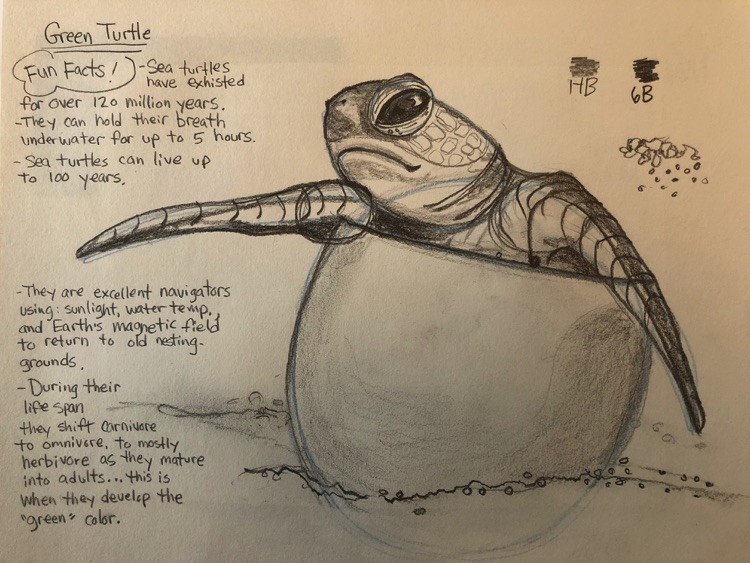 Green Turtle
Fun Facts!
- Sea turtles
have exhisted
for over 120 million years.
- They can hold their breath
underwater for up to 5 hours.
- Sea turtles can live up
to 100 years.
HB
6B
- They are excellent navigators
using: sunlight, water temp.,
and Earth's magnetic field
to return to old nesting-
grounds.
- During their
life span
they shift carnivore
to omnivore, to mostly
herbivore as they mature
into adults... this is
when they develop the
"green" color.